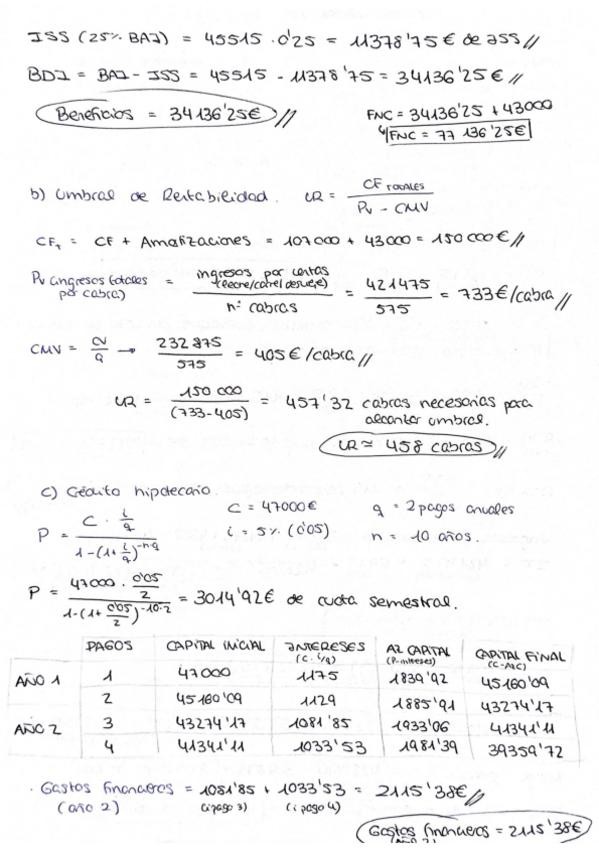 ISS (25% BAI) = 45515 · 0'25 = 11378'75 € de ISS //
BDI = BAI - ISS = 45515 - 11378'75 = 34136'25 € //
Beneficios = 34136'25€ //
FNC = 34136'25 + 43000
FNC = 77 136'25€
b) Umbral de Rentabilidad. UR = CF TOTALES / Pv - CMV
CFT = CF + Amortizaciones = 107000 + 43000 = 150 000€ //
Pv (ingresos totales por cabra) = ingresos por ventas (leche/carne/desueje) / nº cabras = 421475 / 575 = 733€/cabra //
CMV = CV / q → 232 875 / 575 = 405€/cabra //
UR = 150 000 / (733-405) = 457'32 cabras necesarias para
alcanzar umbral.
UR ≃ 458 cabras //
c) Crédito hipotecario
C = 47000€ q = 2 pagos anuales
i = 5% (0'05) n = 10 años.
P = C · i/q / 1-(1+i/q)^-n·q
P = 47000 · 0'05/2 / 1-(1+0'05/2)^-10·2 = 3014'92€ de cuota semestral.
PAGOS CAPITAL INICIAL INTERESES (C·i/q) AL CAPITAL (P-intereses) CAPITAL FINAL (C-ALC)
AÑO 1 1 47000 1175 1839'92 45160'09
2 45160'09 1129 1885'91 43274'17
AÑO 2 3 43274'17 1081'85 1933'06 41341'11
4 41341'11 1033'53 1981'39 39359'72
· Gastos financieros = 1081'85 + 1033'53 = 2115'38€ //
(año 2) (i pago 3) (i pago 4)
Gastos financieros = 2115'38€